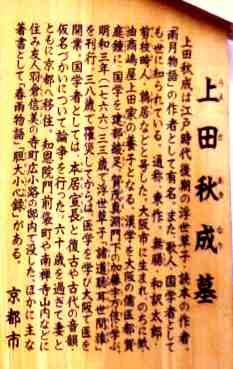 上田秋成墓
上田秋成は江戸時代後期の浮世草子、読本の作者。
「雨月物語」の作者として有名。また、歌人、国学者として
も世に知られている。通称、東作。無腸、和訳太郎、
剪枝畸人、鶉居などと号した。大阪市に生まれ、のちに紙
油商嶋屋上田家の養子となる。漢学を大阪の儒医都賀
庭鐘に、国学を建部綾足、賀茂真淵門下の加藤宇万伎に学ぶ。
明和三年(一七六六)三三歳で浮世草子「諸道聴耳世間猿」
を刊行。三八歳で罹災してからは、医学を学び大阪で医を
開業。国学者としては、本居宣長と復古や古代の音韻、
仮名づかいについて論争を行った。六十歳を過ぎて妻と
ともに京都へ移住。知恩院門前袋町や南禅寺山内などに
住み友人羽倉信美の寺町広小路の邸内で没した。ほかに主な
著書として「春雨物語」「胆大小心録」がある。
京都市